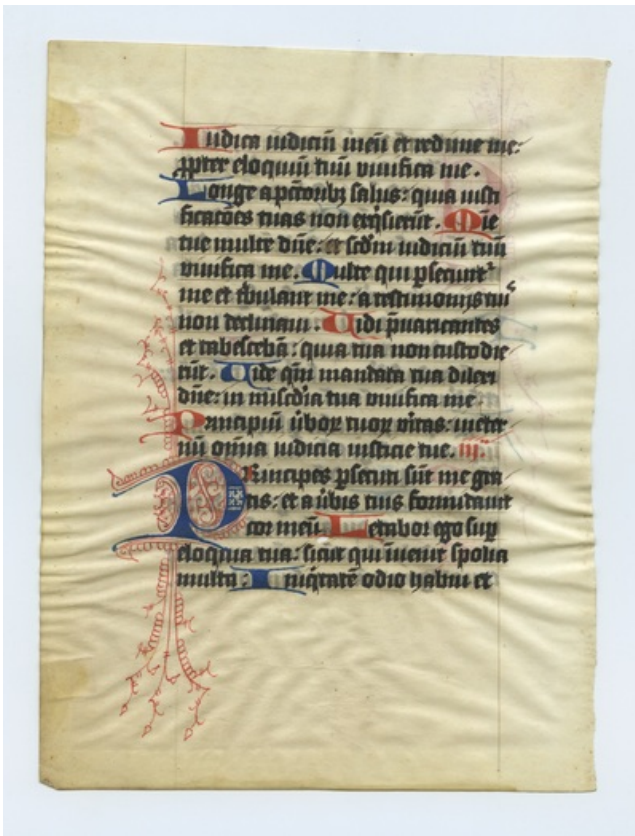 Iudica iudiciū meū et redime me:
ꝓpter eloquiū tuū viuifica me.
Longe a pctoribꝫ salus: quia iusti
ficacōes tuas non exqsierūt. Mie
tue multe dn̄e: et scd̄m iudiciū tuū
viuifica me. Multi qui ꝑsecunt᷑
me et t̄bulant me: a testimonijs tuis
non declinaui. Uidi p̄uaricantes
et tabescebā: quia tua non custodie
rūt. Uide qm̄ mandata tua dilexi
dn̄e: in miscdia tua viuifica me.
Principiū v̄boꝝ tuoꝝ v̄itas: in eter
nū om̄ia iudicia iusticie tue. iij.
Principes ꝑsecuti sūt me gra
tis: et a v̄bis tuis formidauit
cor meū Letabor ego suꝑ
eloquia tua: sicut qui īuenit spolia
multa: Iniqͥtatē odio habui et